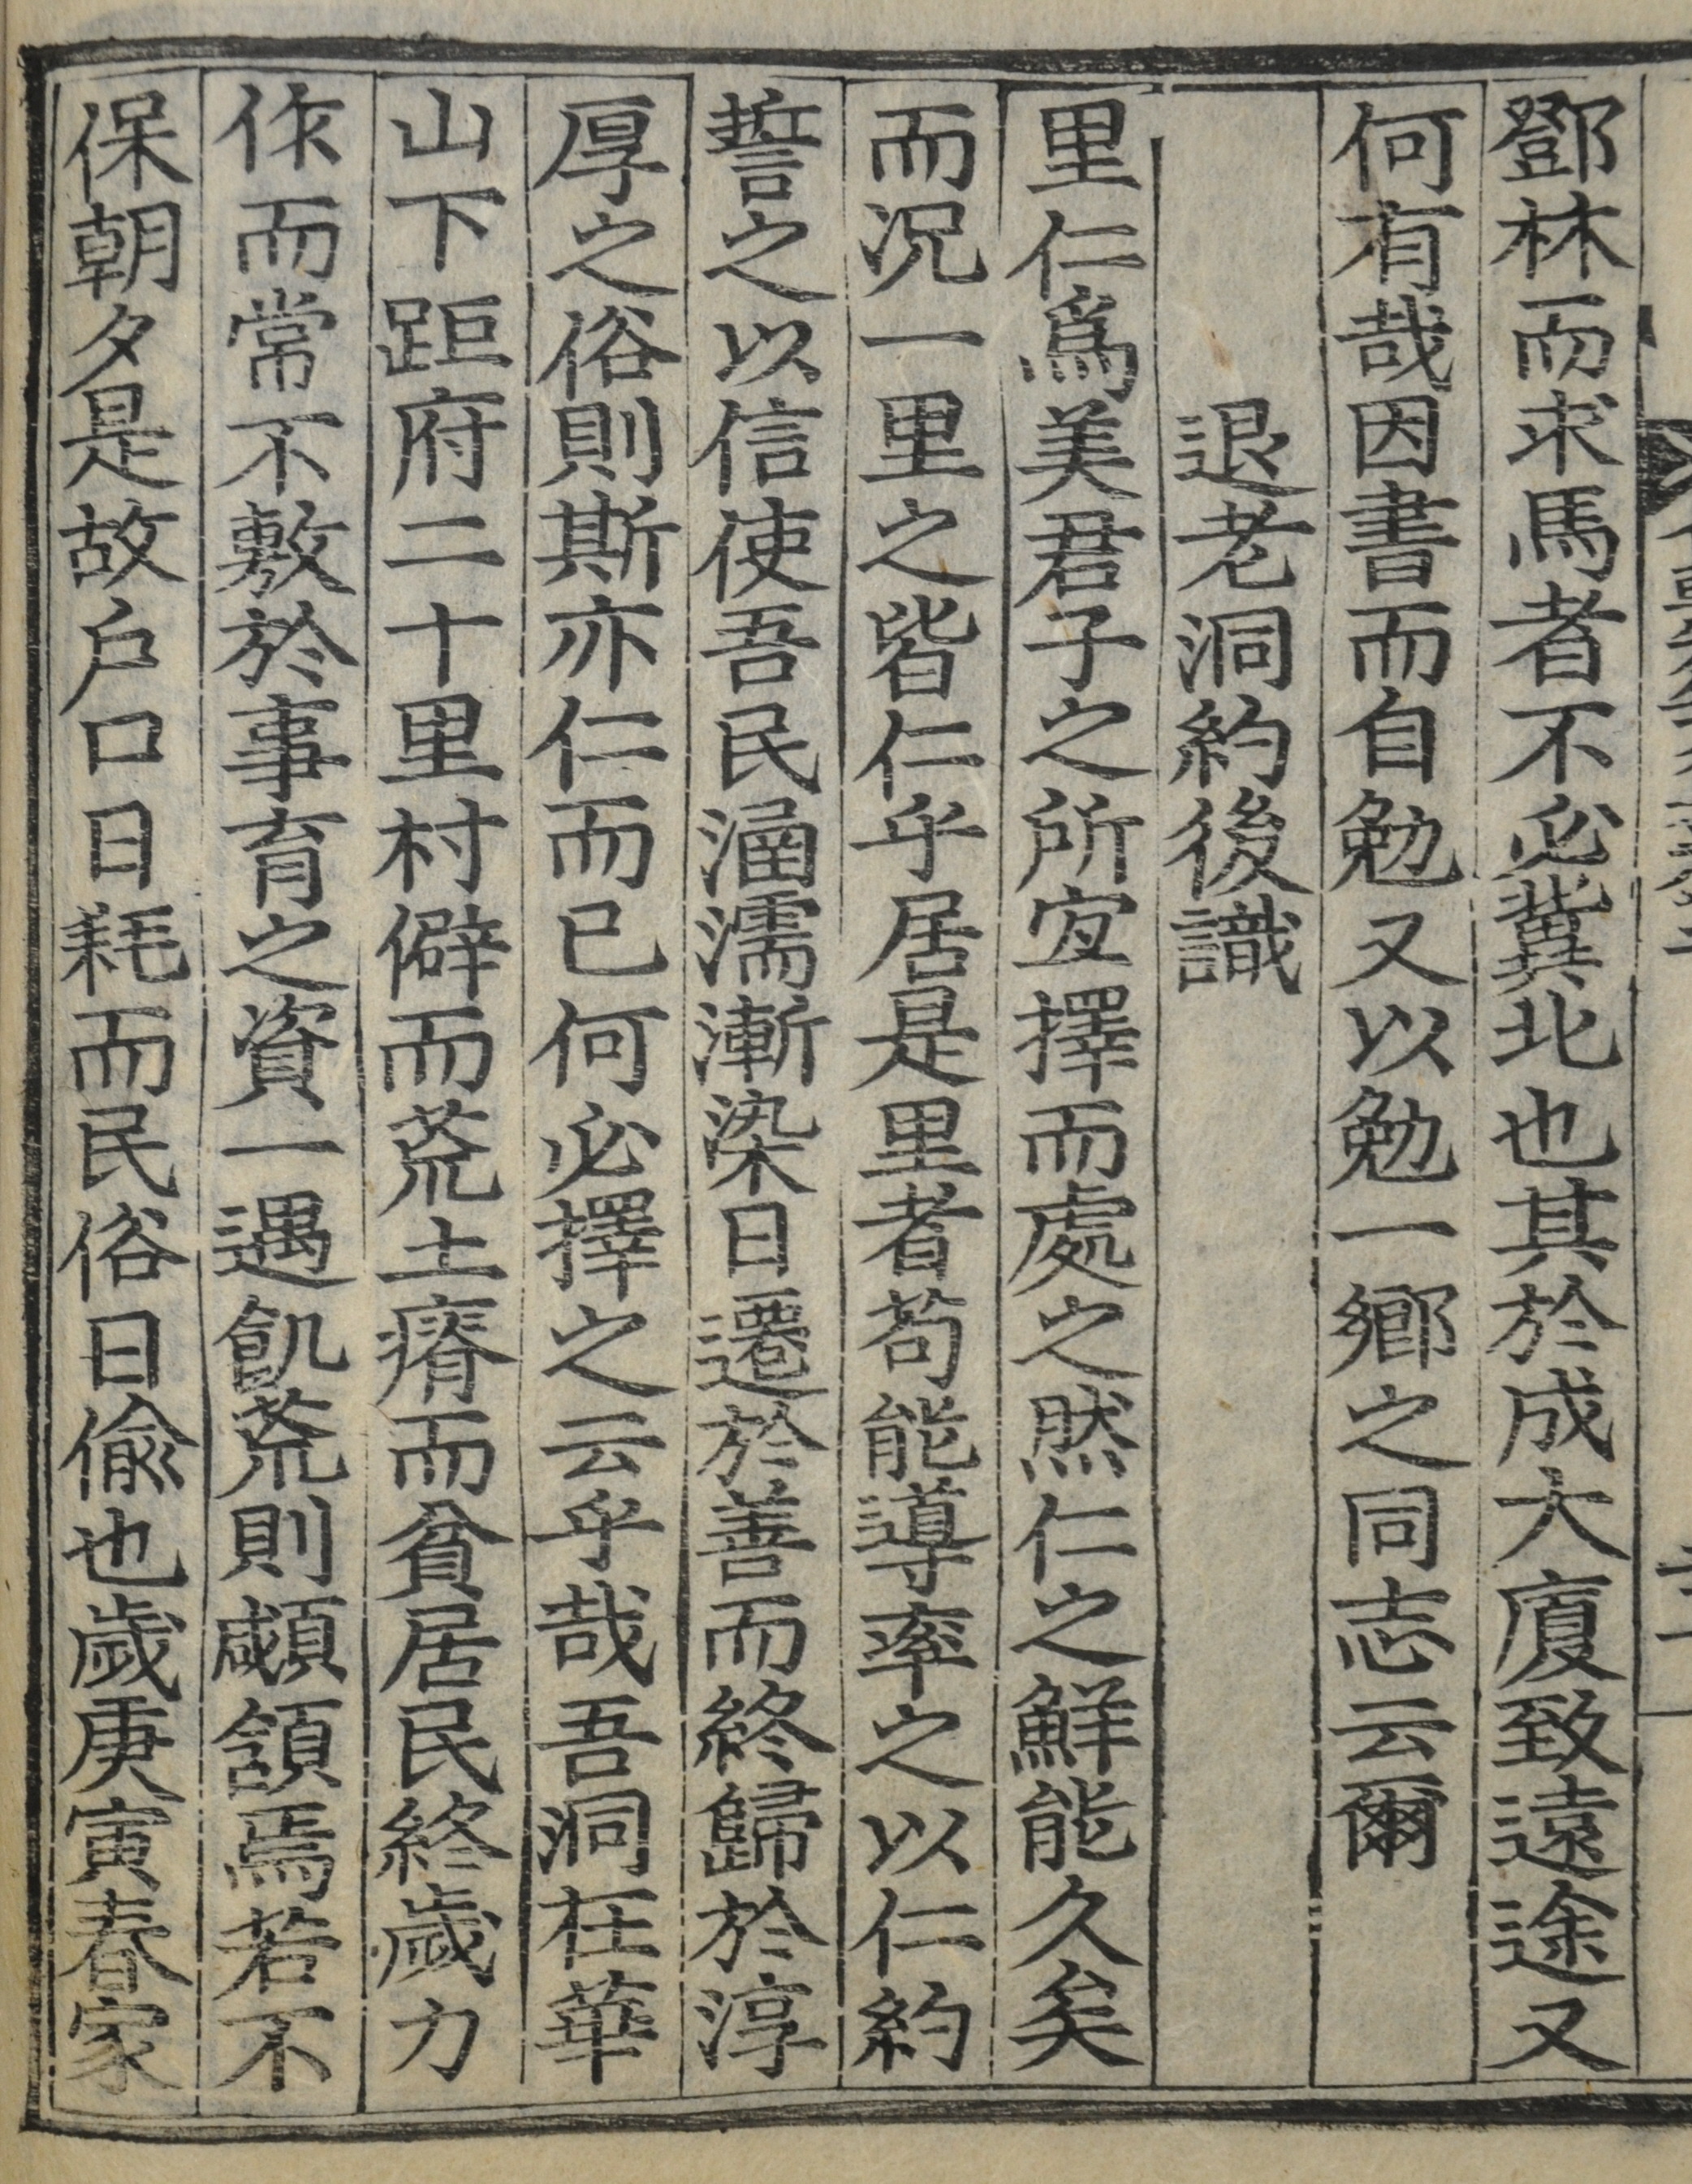 鄧林而求馬者不必冀北也其於成大廈致遠途又
何有哉因書而自勉又以勉一鄉之同志云爾
退老洞約後識
里仁爲美君子之所宜擇而處之然仁之鮮能久矣
而况一里之皆仁乎居是里者苟能導率之以仁約
誓之以信使吾民涵濡漸染日遷於善而終歸於淳
厚之俗則斯亦仁而已何必擇之云乎哉吾洞在華
山下距府二十里村僻而荒土瘠而貧居民終歲力
作而常不敷於事育之資一遇飢荒則顑頷焉若不
保朝夕是故戶口日耗而民俗日偸也歲庚寅春家